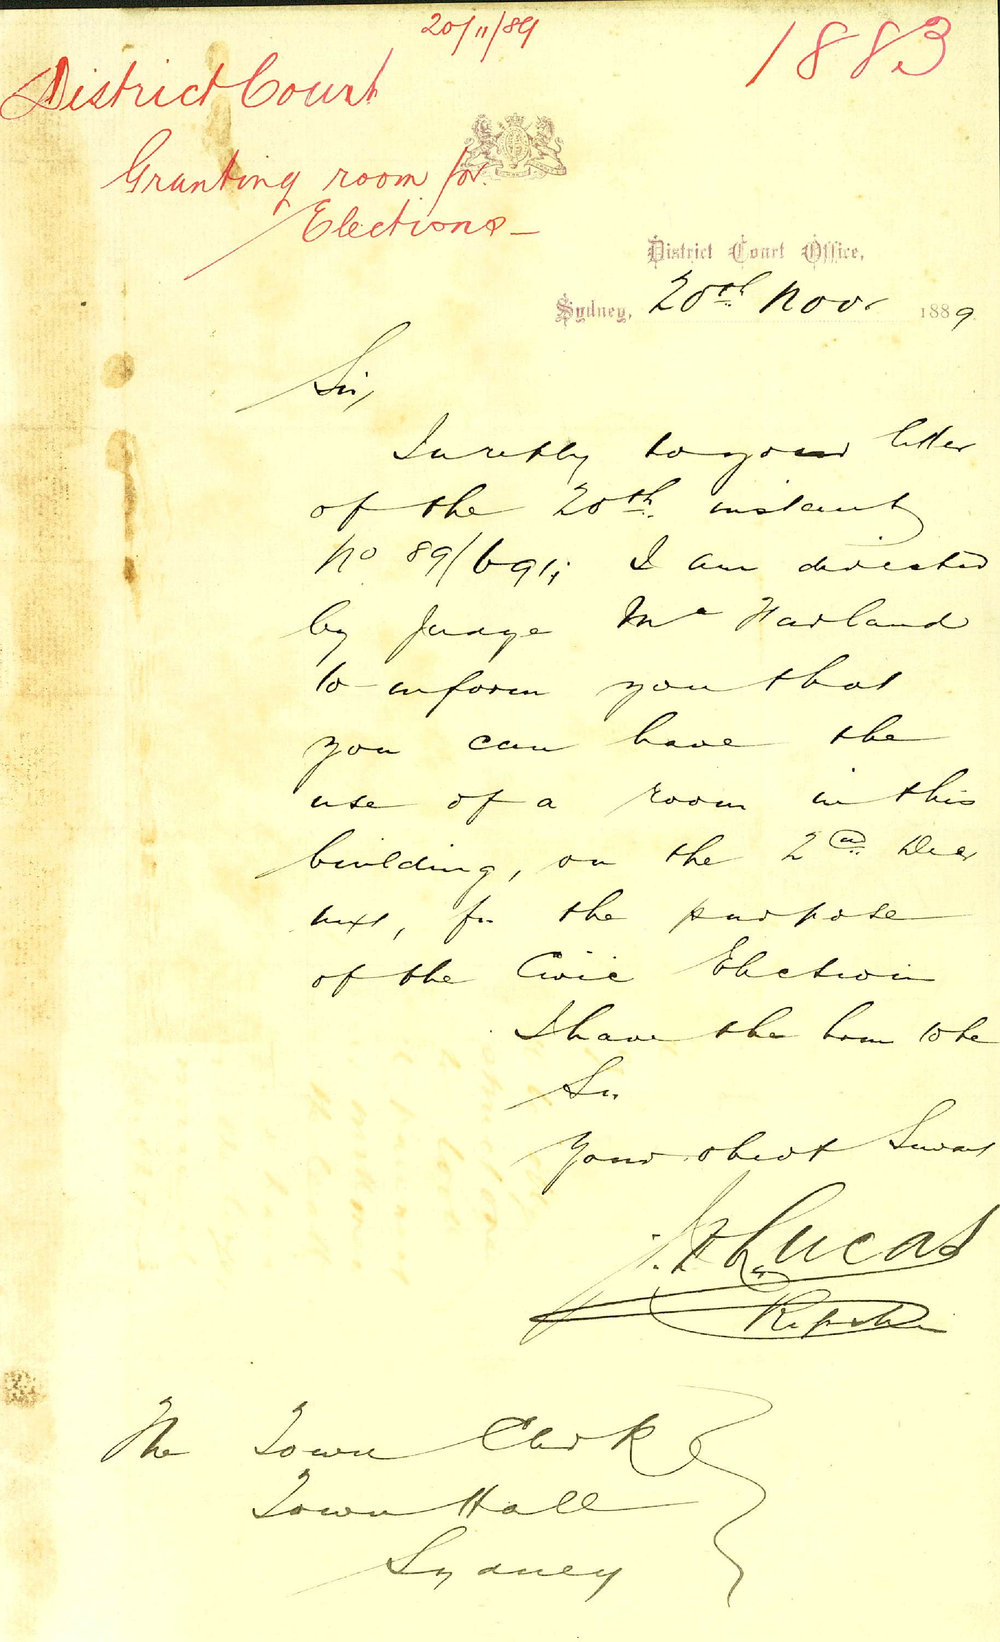 20/11/89
1883
District Court
Granting room for
Elections
District Court Office,
Sydney, 20th Novr 1889
Sir,
In reply to your letter
of the 20th instant
No 89/ I am directed
by Judge McFarland
to inform you that
you can have the
use of a room in this
building, on the 2nd Decr
next, for the purpose
of the Civic Election
I have the honr to be
Sir
Your obedt Servant
Lucas
Registrar
The Town Clerk
Town Hall
Sydney